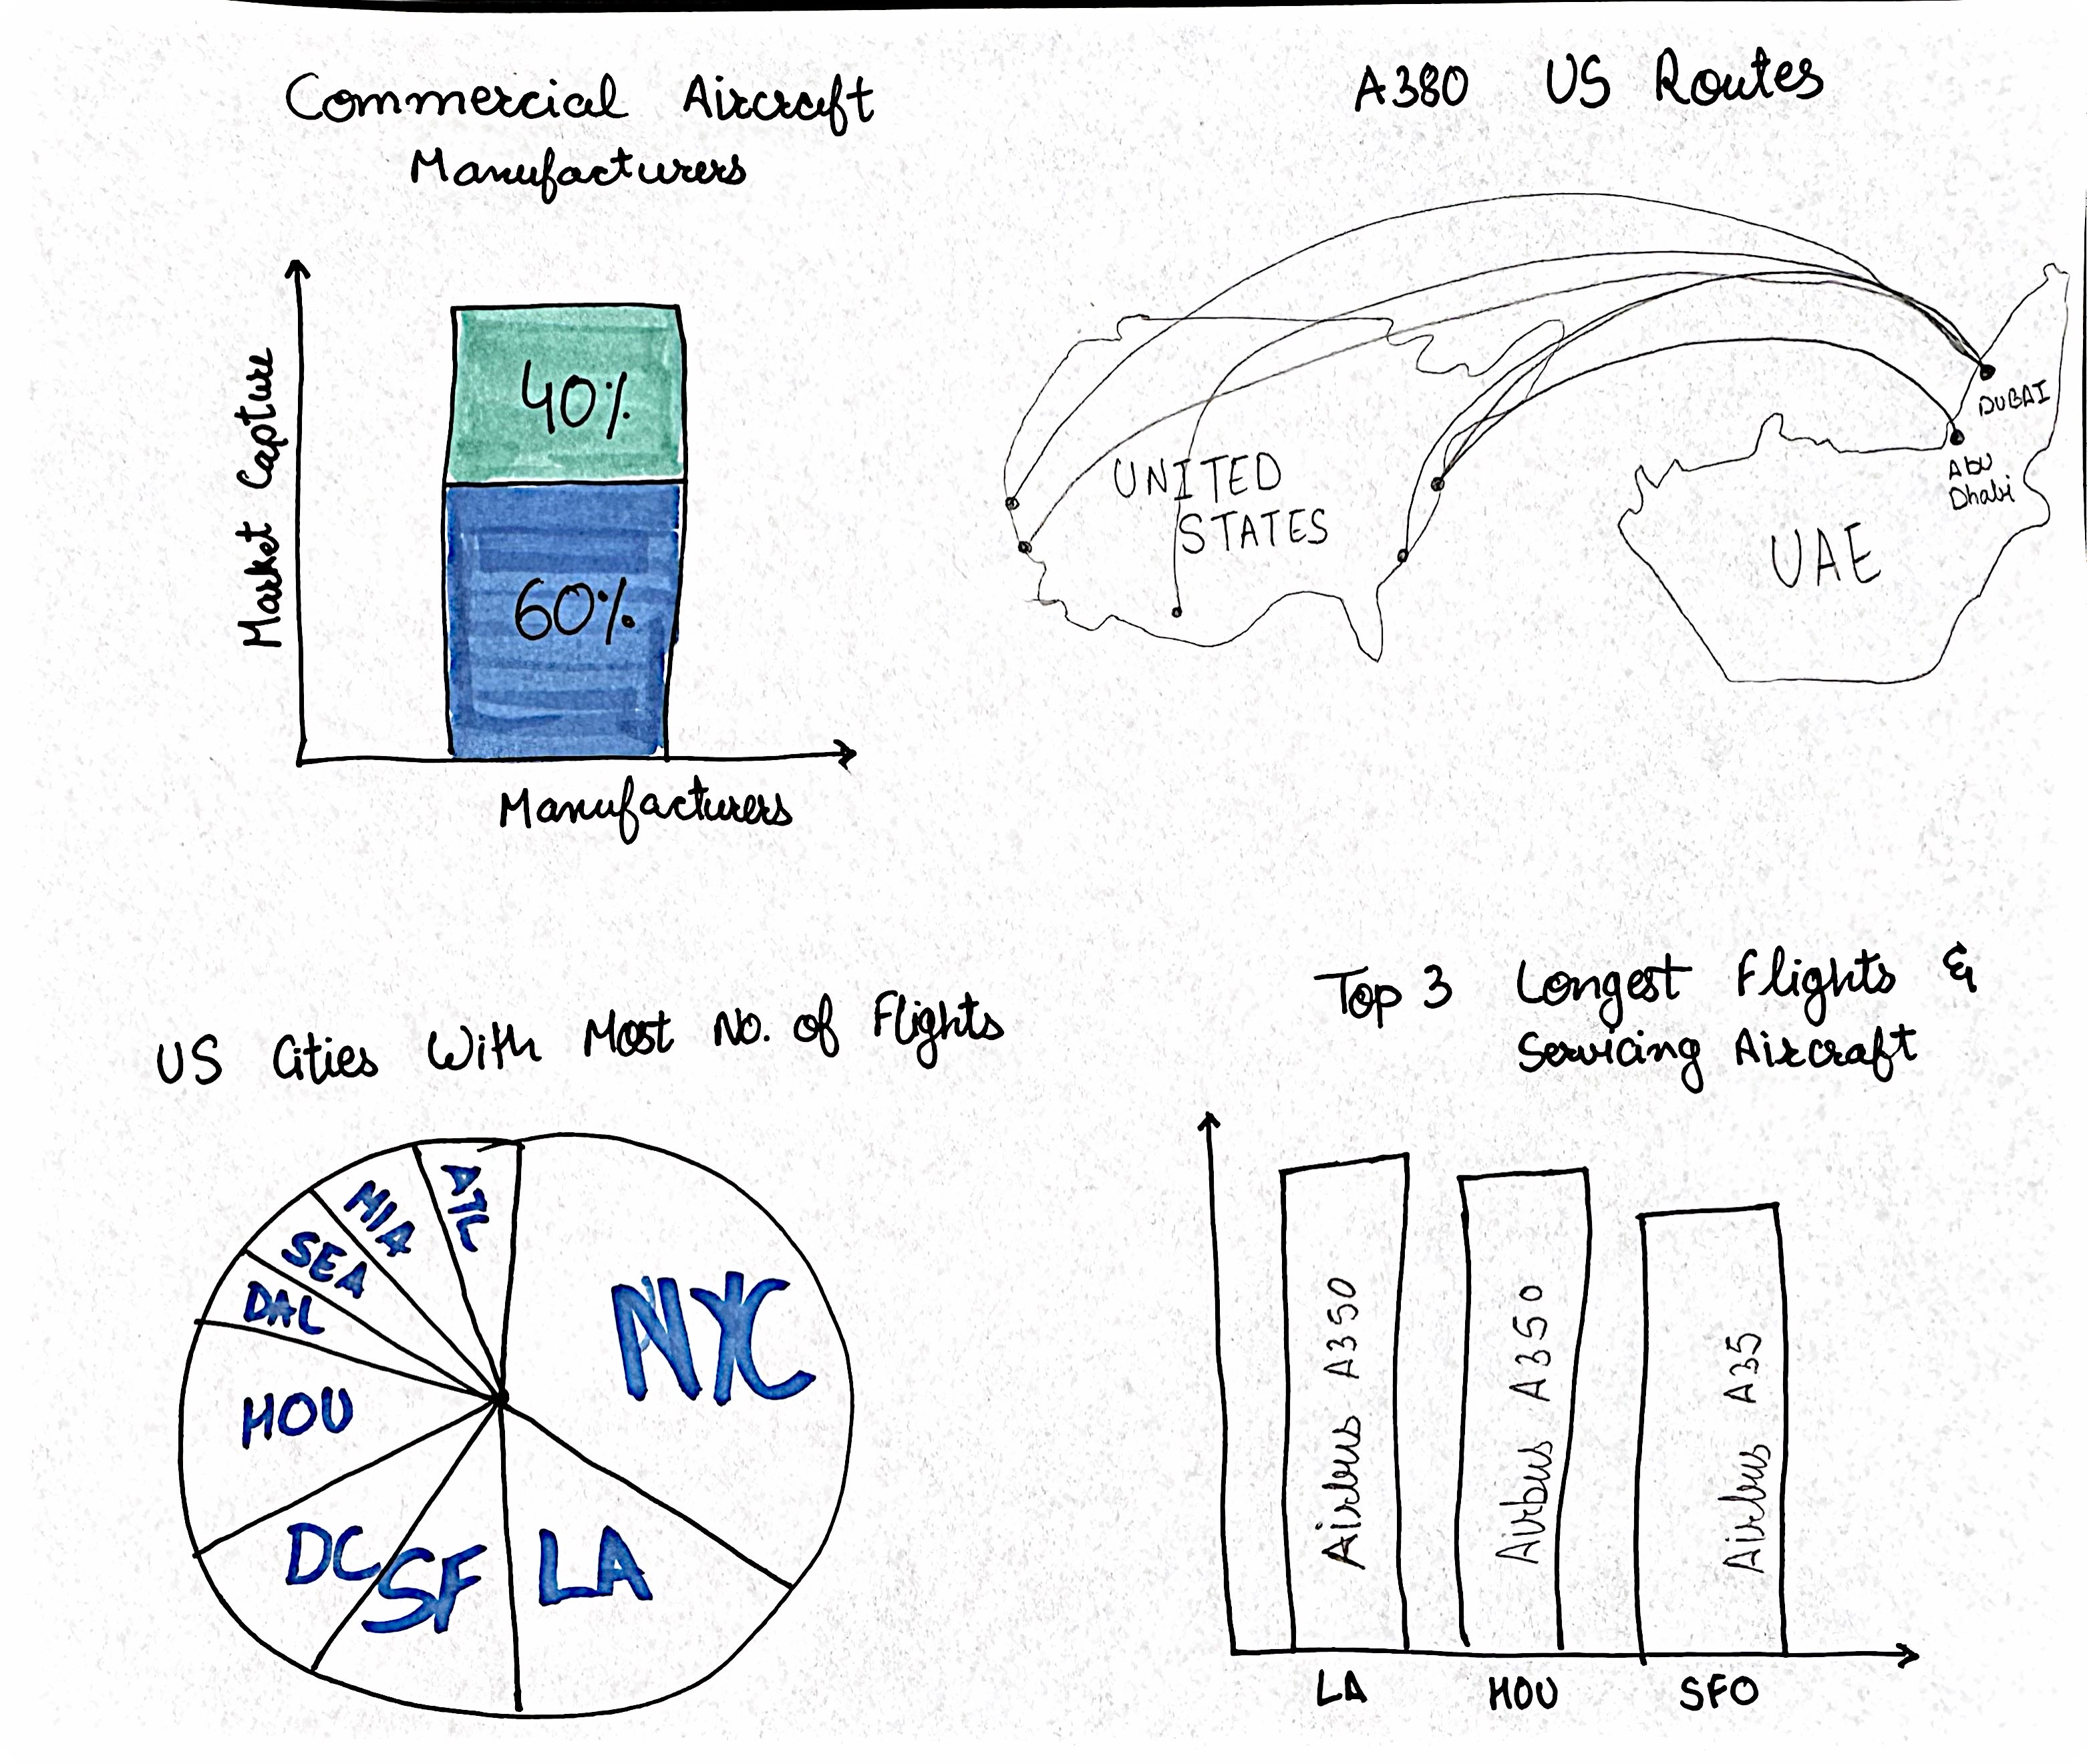 Commercial Aircraft
Manufacturers
Market Capture
40%
60%
Manufacturers
A380 US Routes
UNITED
STATES
DUBAI
Abu
Dhabi
UAE
US Cities With Most No. of Flights
ATL
MIA
SEA
DAL
HOU
DC
SF
LA
NYC
Top 3 Longest Flights &
Servicing Aircraft
Airbus A350
Airbus A350
Airbus A35
LA
HOU
SFO